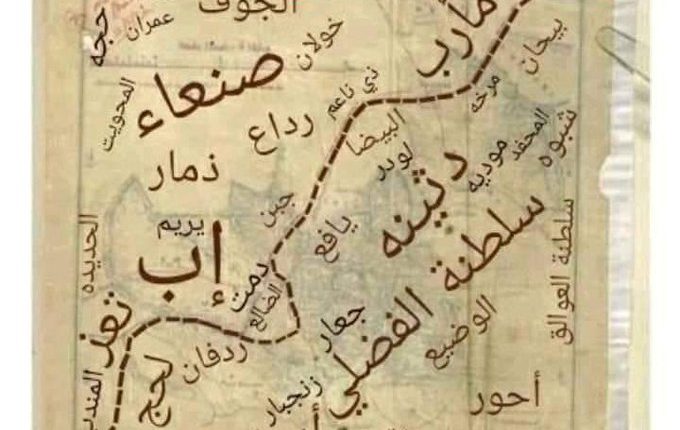 الجوف
مأرب
بيحان
خولان
عمران
حجه
صنعاء
ذي ناعم
مرخه
المحويت
رداع
البيضا
لودر
موديه
المحفد
شبوه
ذمار
دثينه
جبن
يافع
سلطنة الفضلي
سلطنة العوالق
يريم
الحديده
إب
دمت
الضالع
جعار
الوضيع
تعز
ردفان
لحج
زنجبار
أحور
المندب